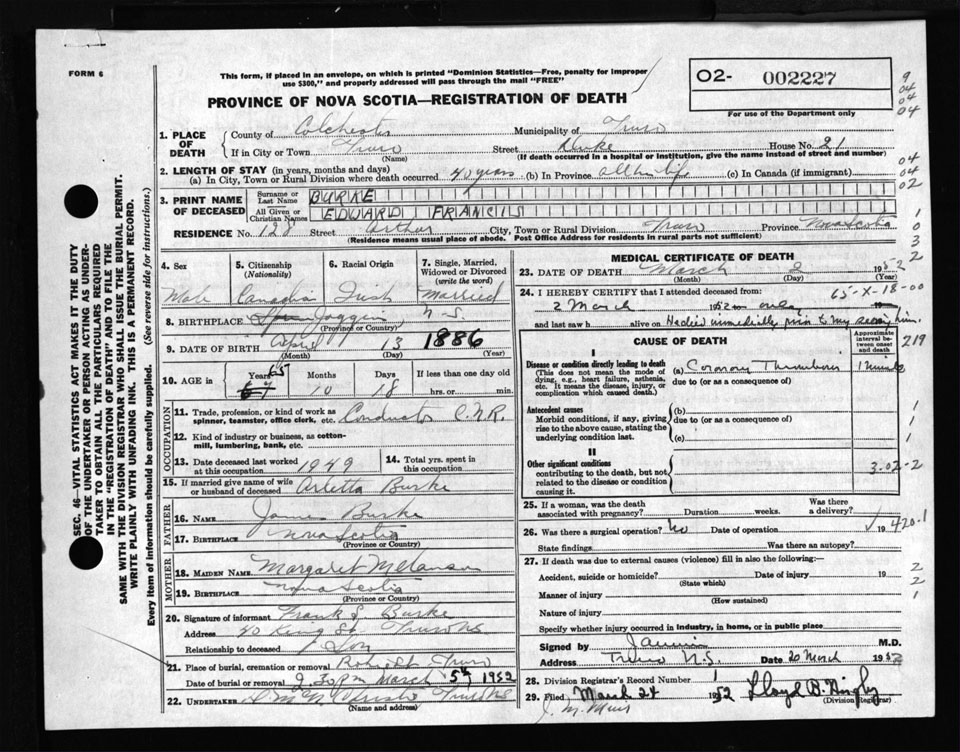 FORM 6
This form, if placed in an envelope, on which is printed "Dominion Statistics—Free, penalty for improper
use $300," and properly addressed will pass through the mail "FREE"
O2- 002227
For use of the Department only
PROVINCE OF NOVA SCOTIA—REGISTRATION OF DEATH
9
04
04
04
1. PLACE OF DEATH
County of Colchester Municipality of Truro
If in City or Town Truro Street House No. 21
(Name) (If death occurred in a hospital or institution, give the name instead of street and number)
04
04
02
2. LENGTH OF STAY (in years, months and days)
(a) In City, Town or Rural Division where death occurred 40 years (b) In Province all his life (c) In Canada (if immigrant)
3. PRINT NAME OF DECEASED
Surname or Last Name BURKE
All Given or Christian Names EDWARD FRANCIS
RESIDENCE No. 128 Street Arthur City, Town or Rural Division Truro Province Nova Scotia
(Residence means usual place of abode. Post Office Address for residents in rural parts not sufficient)
1
0
3
2
SEC. 46—VITAL STATISTICS ACT MAKES IT THE DUTY
OF THE UNDERTAKER OR PERSON ACTING AS UNDER-
TAKER TO OBTAIN ALL THE PARTICULARS REQUIRED
IN THE "REGISTRATION OF DEATH" AND TO FILE THE
SAME WITH THE DIVISION REGISTRAR WHO SHALL ISSUE THE BURIAL PERMIT.
WRITE PLAINLY WITH UNFADING INK. THIS IS A PERMANENT RECORD.
Every item of information should be carefully supplied. (See reverse side for instructions.)
4. Sex
Male
5. Citizenship
(Nationality)
Canadian
6. Racial Origin
Irish
7. Single, Married,
Widowed or Divorced
(write the word)
Married
8. BIRTHPLACE Joggins, N.S.
(Province or Country)
9. DATE OF BIRTH April 13 1886
(Month) (Day) (Year)
10. AGE in Years 65 Months 10 Days 18 If less than one day
hrs. or min.
OCCUPATION
11. Trade, profession, or kind of work as
spinner, teamster, office clerk, etc. Conductor C.N.R.
12. Kind of industry or business, as cotton-
mill, lumbering, bank, etc.
13. Date deceased last worked
at this occupation 1949
14. Total yrs. spent in
this occupation
15. If married give name of wife
or husband of deceased Arletta Burke
FATHER
16. NAME James Burke
17. BIRTHPLACE Nova Scotia
(Province or Country)
MOTHER
18. MAIDEN NAME Margaret
19. BIRTHPLACE Nova Scotia
(Province or Country)
20. Signature of informant Frank J. Burke
Address 40 King St. Truro NS
Relationship to deceased Son
21. Place of burial, cremation or removal Truro
Date of burial or removal 2.30 P.M. March 5th 1952
22. UNDERTAKER Truro NS
(Name and address)
MEDICAL CERTIFICATE OF DEATH
23. DATE OF DEATH March 2 1952
(Month) (Day) (Year)
24. I HEREBY CERTIFY that I attended deceased from: 65-X-18-00
2 March 1952 only 19
and last saw h alive on He died immediately prior to my seeing him.
219
CAUSE OF DEATH
Approximate
interval be-
tween onset
and death
I
Disease or condition directly leading to death
(This does not mean the mode of
dying, e.g., heart failure, asthenia,
etc. It means the disease, injury, or
complication which caused death.)
(a) Coronary Thrombosis 1 minute
due to (or as a consequence of)
Antecedent causes
Morbid conditions, if any, giving
rise to the above cause, stating the
underlying condition last.
(b)
due to (or as a consequence of)
(c)
1
1
1
II
Other significant conditions
contributing to the death, but not
related to the disease or condition
causing it.
3-02-2
25. If a woman, was the death
associated with pregnancy? Duration weeks. Was there
a delivery?
26. Was there a surgical operation? No Date of operation 19
420-1
State findings Was there an autopsy?
27. If death was due to external causes (violence) fill in also the following:
Accident, suicide or homicide? Date of injury 19
(State which)
Manner of injury
(How sustained)
Nature of injury
2
2
1
Specify whether injury occurred in industry, in home, or in public place
Signed by M.D.
Address Truro N.S. Date 20 March 1952
28. Division Registrar's Record Number 1
29. Filed March 24 1952 Lloyd B.
(Division Registrar)
J. M. Muir